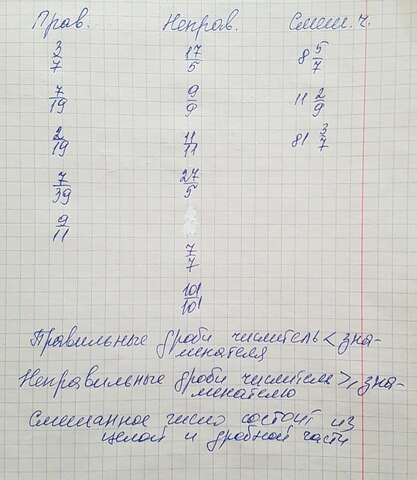 Прав. Неправ. Смеш. ч.
3/7 17/5 8 5/7
7/19 9/9 11 2/9
2/19 11/11 81 3/7
7/39 27/5
9/11
7/7
101/101
Правильные дроби числитель < зна-
менателя
Неправильные дроби числители >, зна-
менателю
Смешанное число состоит из
целой и дробной части